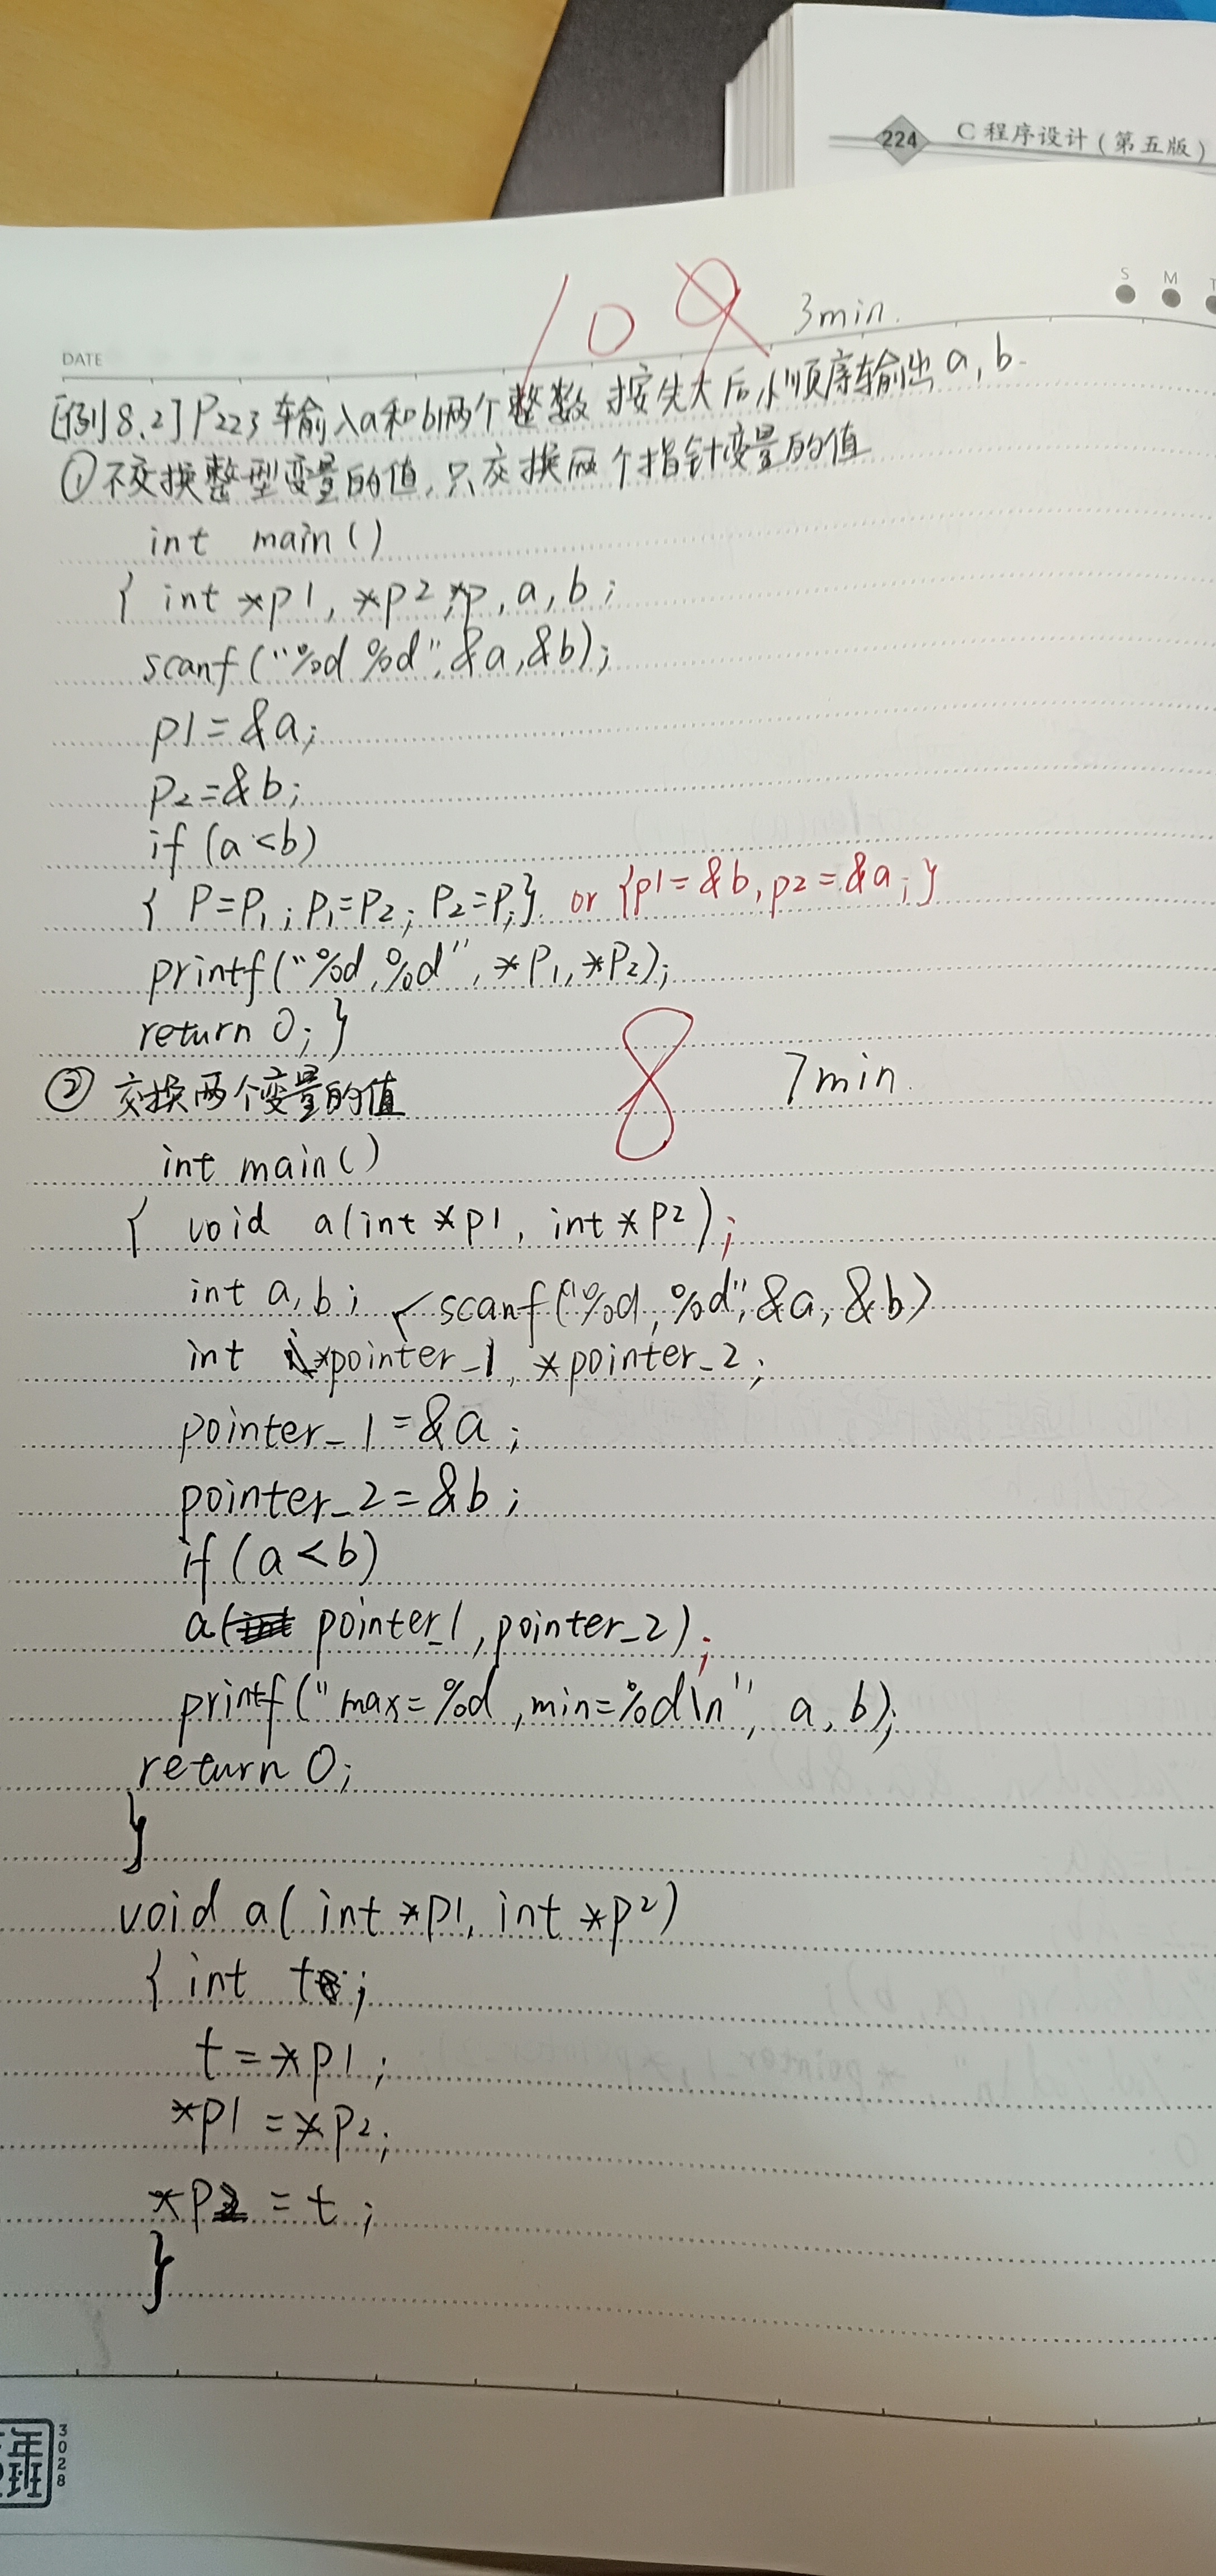 224 C 程序设计(第五版)
S M T
10 8 3min.
DATE
[例8.2]P223 输入a和b两个整数 按先大后小顺序输出a,b.
①不交换整型变量的值,只交换两个指针变量的值
int main()
{ int *p1, *p2,*p, a, b;
scanf("%d %d",&a,&b);
p1=&a;
p2=&b;
if (a<b)
{ P=P1; P1=P2; P2=P;} or {p1=&b, p2=&a;}
printf("%d,%d", *P1,*P2);
return 0; }
8 7min.
② 交换两个变量的值
int main()
{ void a(int *p1, int *p2);
int a,b; scanf("%d,%d",&a,&b)
int *pointer_1, *pointer_2;
pointer_1=&a;
pointer_2=&b;
if (a<b)
a(pointer_1,pointer_2);
printf("max=%d,min=%d\n", a, b);
return 0;
}
void a( int *p1, int *p2)
{ int t;
t=*p1;
*p1=*p2;
*p2=t;
}
年
班
3028